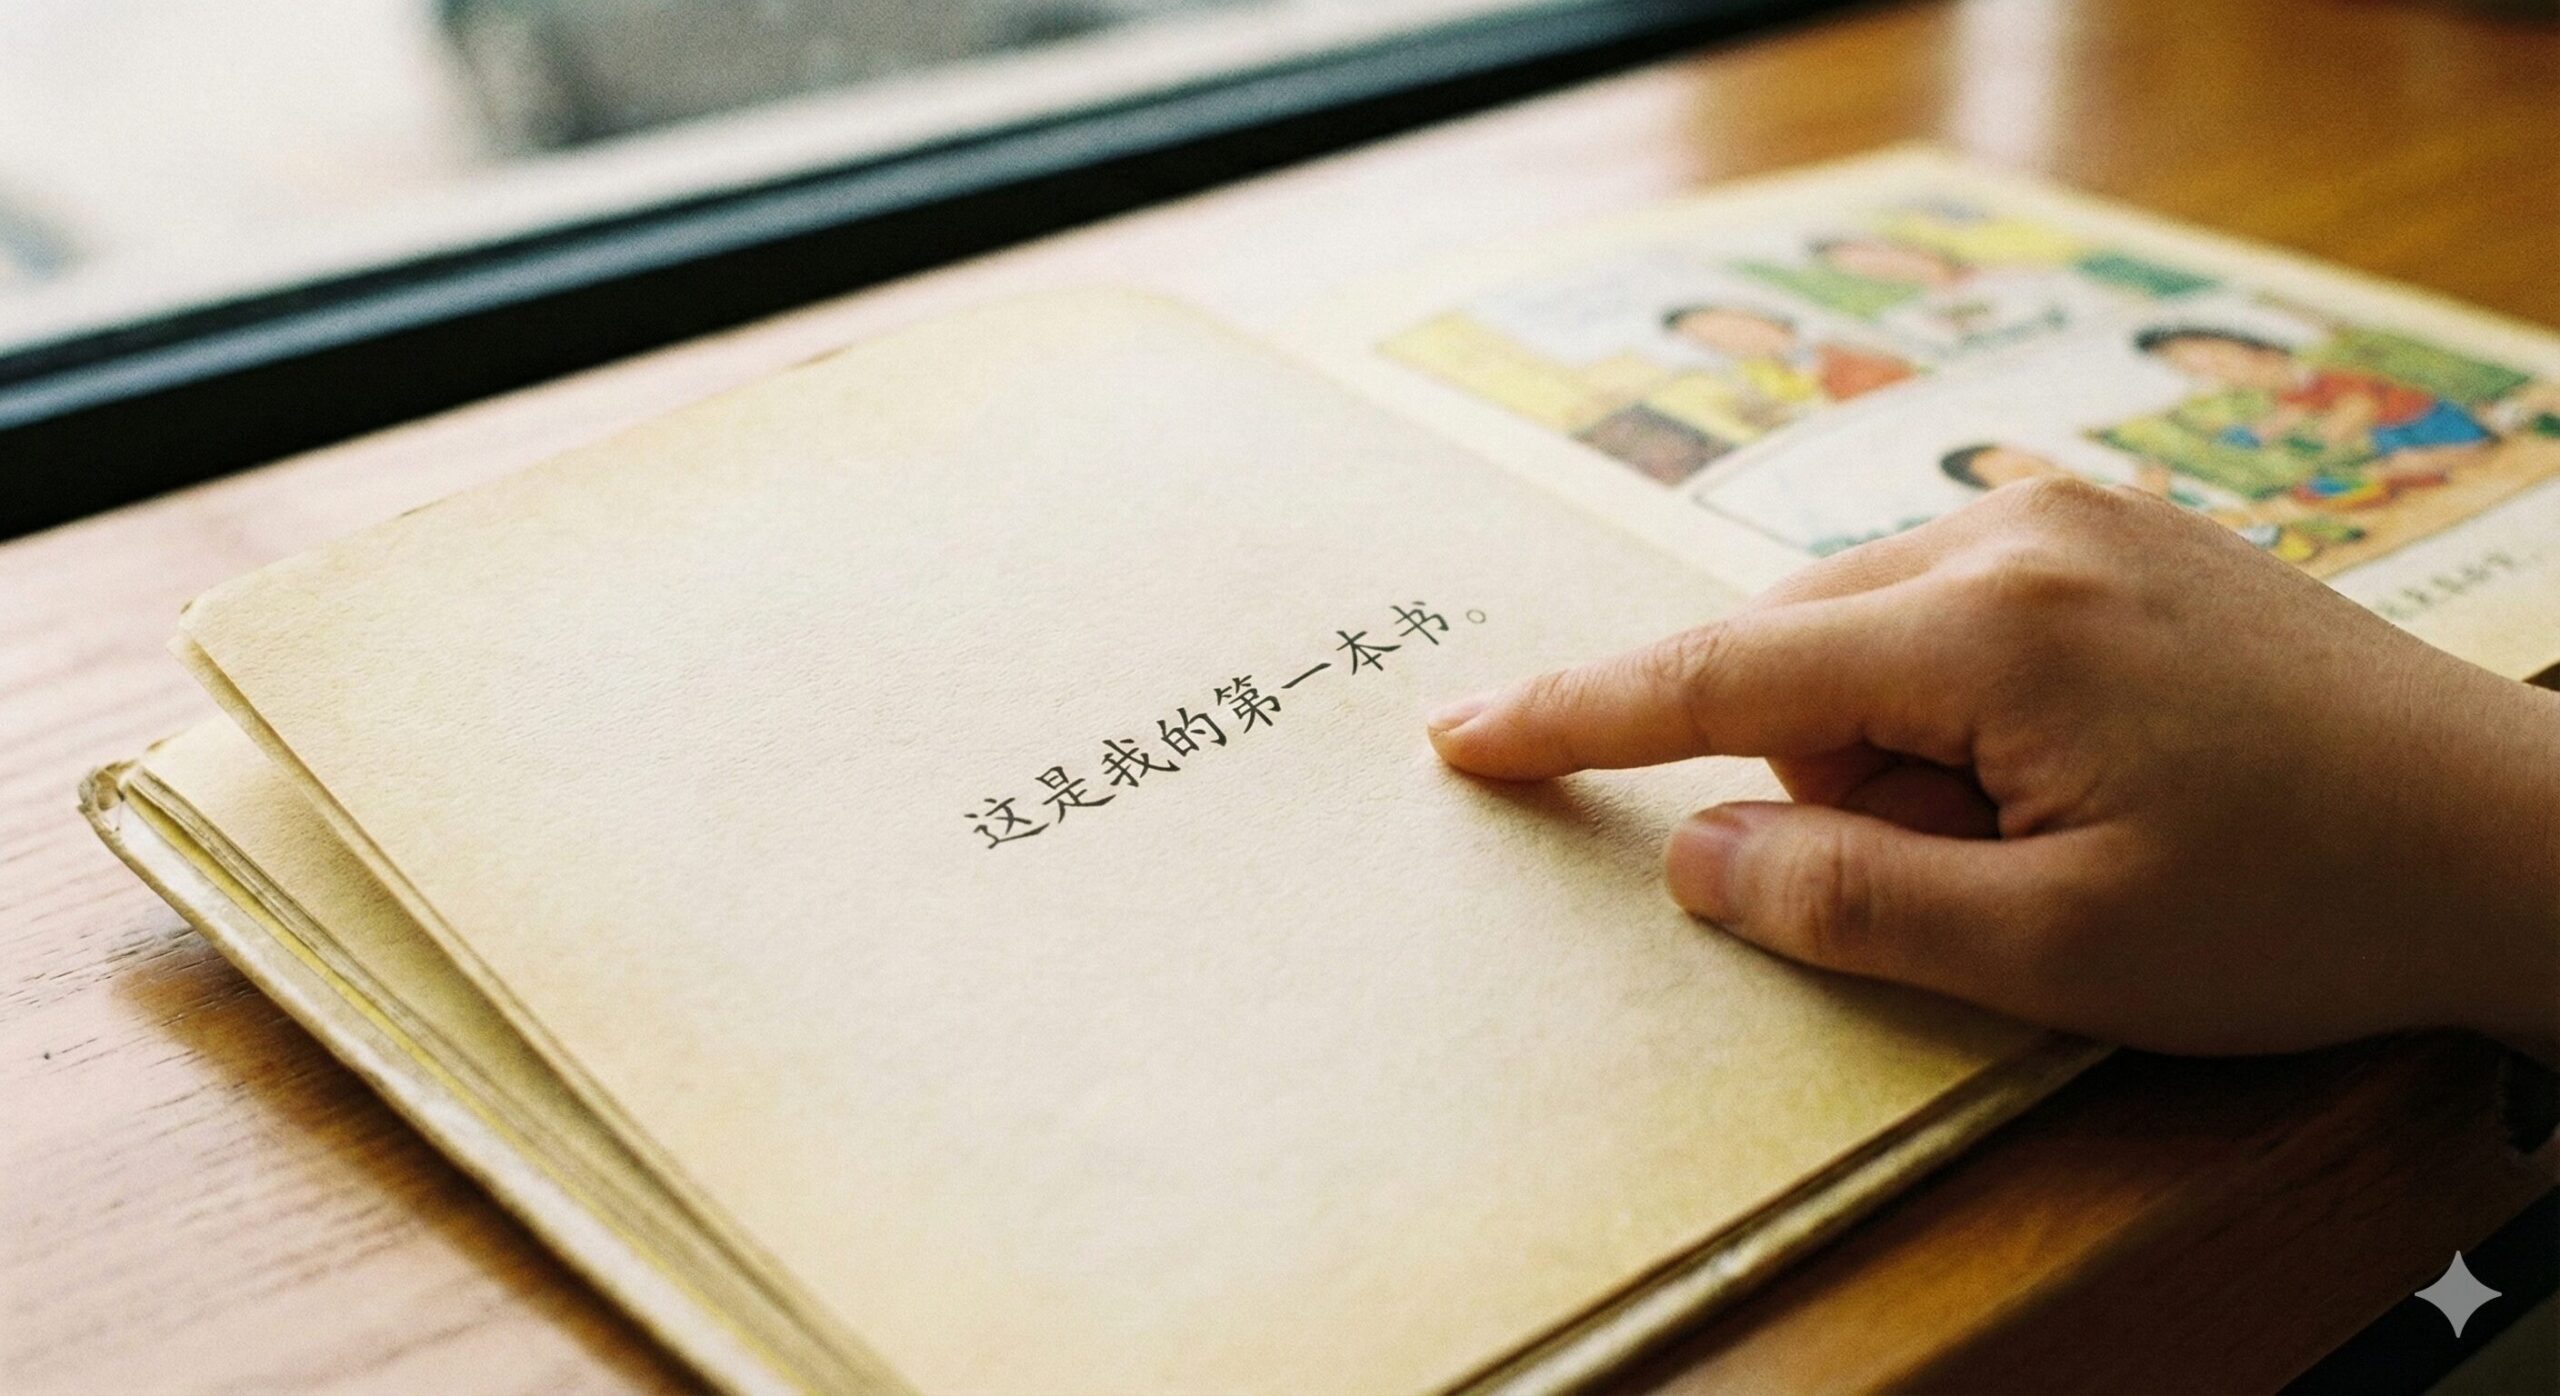 这是我的第一本书。